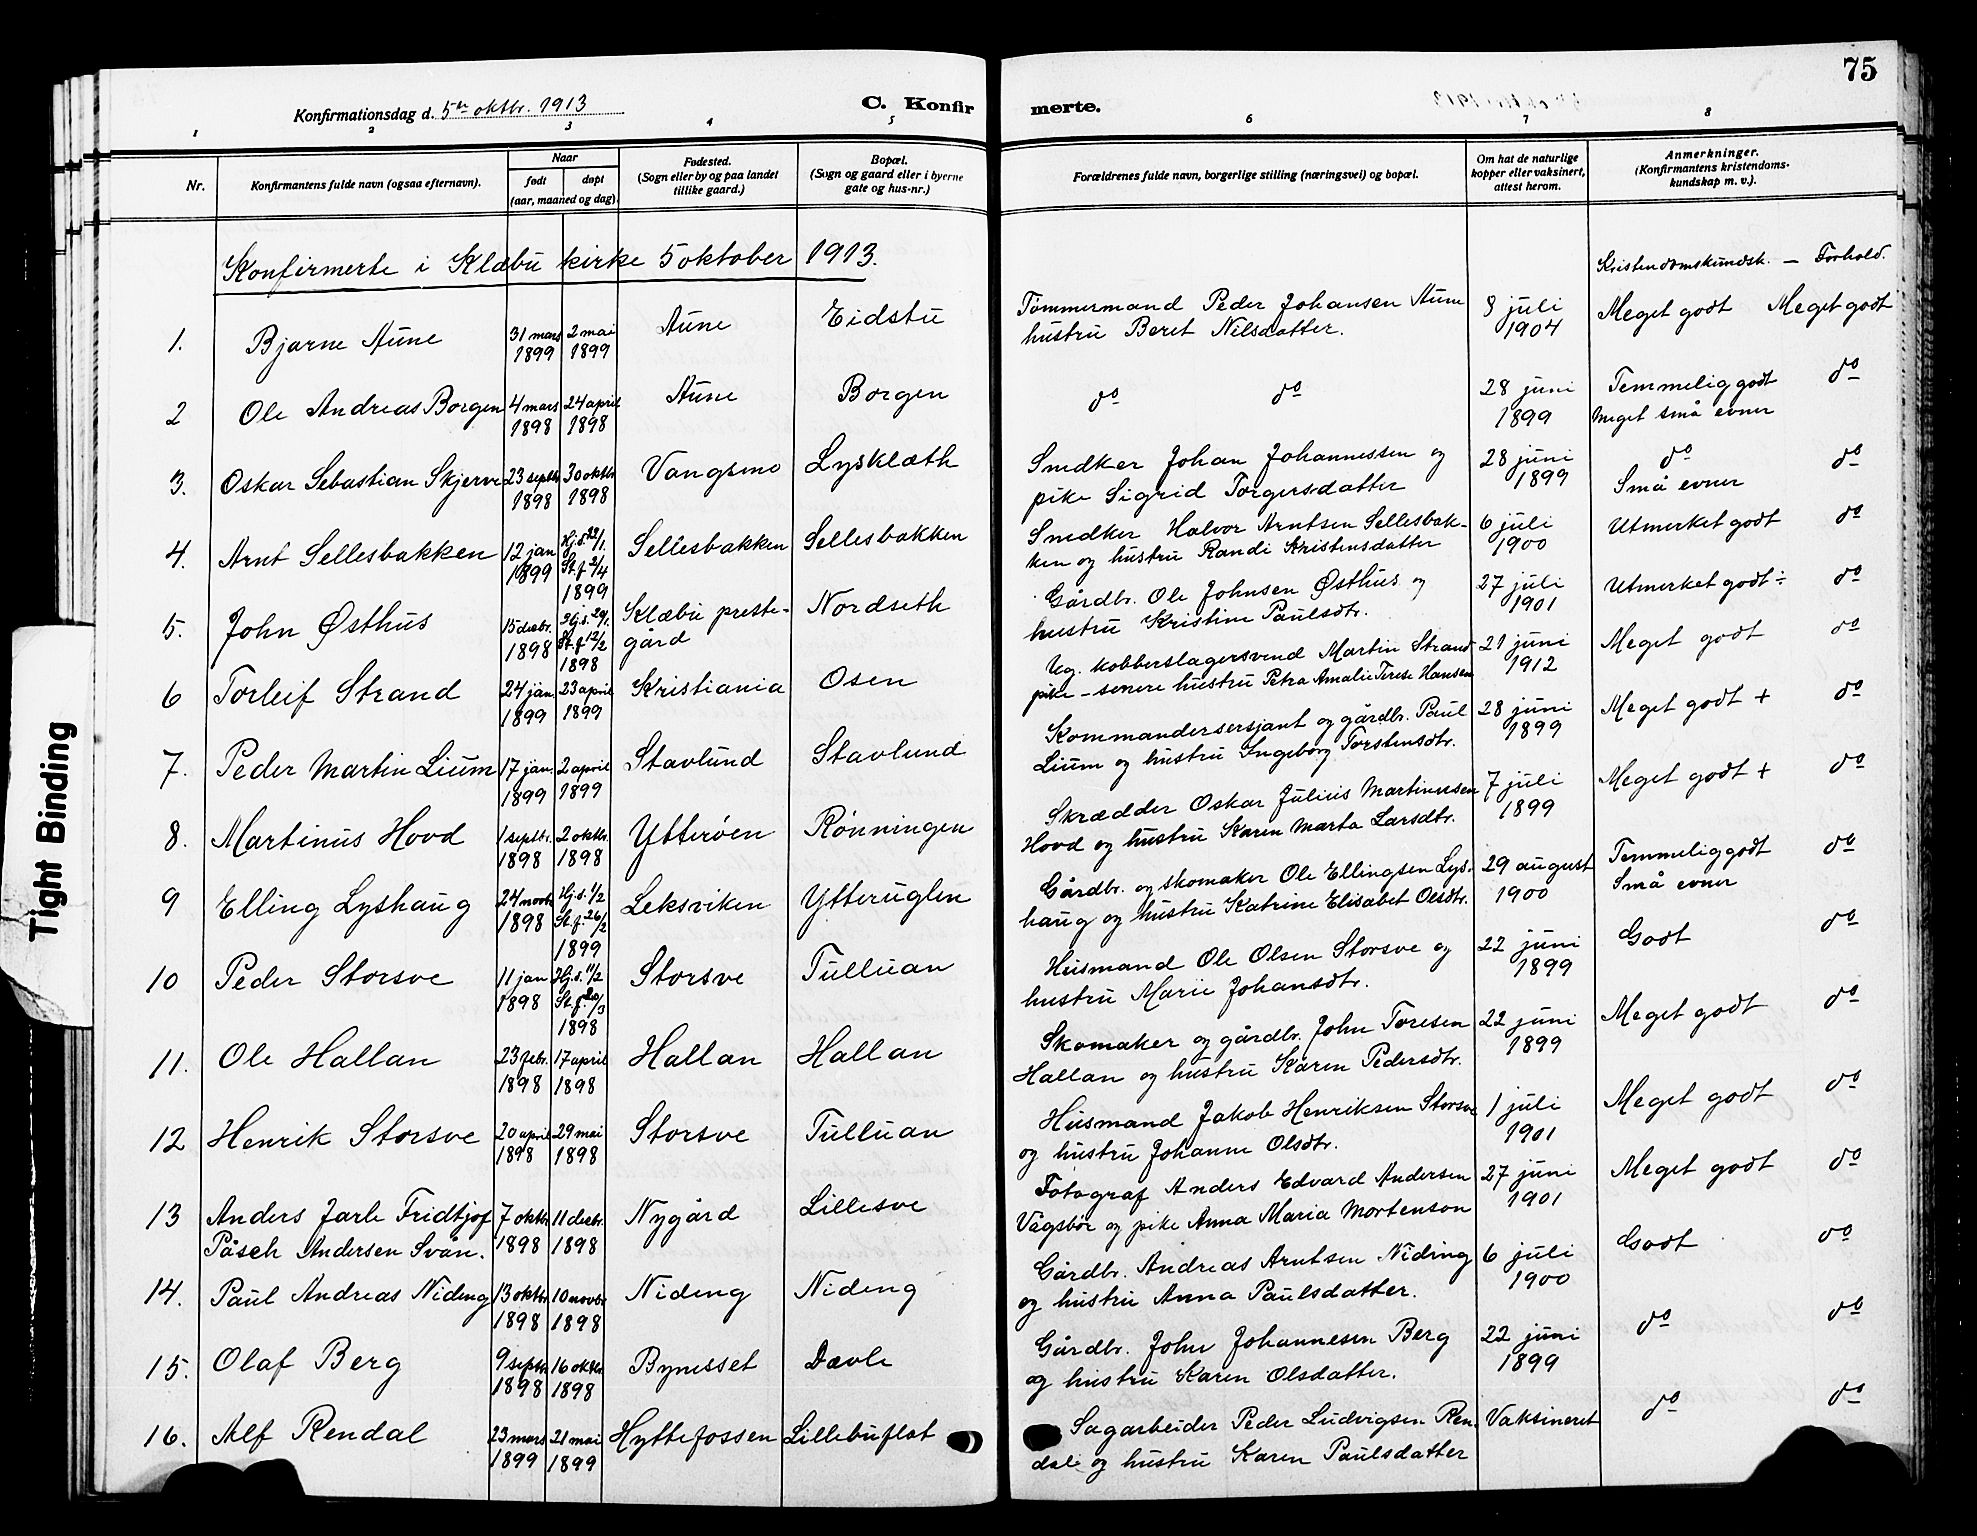 75
Konfirmationsdag d. 5te oktbr. 1913
C. Konfir merte.
1 2 3 4 5 6 7 8
Nr.
Konfirmantens fulde navn (ogsaa efternavn).
Naar
født døpt
(aar, maaned og dag).
Fødested.
(Sogn eller by og paa landet
tillike gaard.)
Bopæl.
(Sogn og gaard eller i byerne
gate og hus-nr.)
Forældrenes fulde navn, borgerlige stilling (næringsvei) og bopæl.
Om hat de naturlige
kopper eller vaksinert,
attest herom.
Anmerkninger.
(Konfirmantens kristendoms-
kundskap m. v.).
Konfirmerte i Klæbu kirke 5 oktober 1913.
Kristendomskundsk. – Forhold.
1. Bjarne Aune 31 mars 1899 2 mai 1899 Aune Eidstu
Tømmermand Peder Johansen Aune
hustru Beret Nilsdatter.
8 juli 1904 Meget godt Meget godt
2 Ole Andreas Borgen 4 mars 1898 24 april 1898 Aune Borgen
do do
28 juni 1899 Temmelig godt do
Meget små evner
3. Oskar Sebastian Skjerve 23 septbr 1898 30 oktbr 1898 Vangsmo Lysklæth
Snedker Johan Johannessen og
pike Sigrid Torgersdatter
28 juni 1899 do do
Små evner
4. Arnt Sellesbakken 12 jan 1899 Hj.d. 22/1. St.f. 2/4 1899 Sellesbakken Sellesbakken
Snedker Halvor Arntsen Sellesbak-
ken og hustru Randi Kristensdatter
6 juli 1900 Utmerket godt do
5. John Østhus 15 decbr. 1898 Hj.d. 29/1. St.f. 12/2 1898 Klæbu preste-
gård Nordseth
Gårdbr. Ole Johnsen Østhus og
hustru Kristine Paulsdtr.
27 juli 1901 Utmerket godt ÷ do
6 Torleif Strand 24 jan. 1899 23 april 1899 Kristiania Osen
Ug. kobberslagersvend Martin Strand
pike – senere hustru Petra Amalie Terese Hansen
21 juni 1912 Meget godt do
7. Peder Martin Lium 17 jan. 1899 2 april 1899 Stavlund Stavlund
Kommandersersjant og gårdbr. Paul
Lium og hustru Ingeborg Torstensdtr.
28 juni 1899 Meget godt + do
8. Martinus Hovd 1 septbr. 1898 2 oktbr. 1898 Ytterøen Rønningen
Skrædder Oskar Julius Martinusen
Hovd og hustru Karen Marta Larsdtr.
7 juli 1899 Meget godt + do
9 Elling Lyshaug 24 novbr. 1898 Hj.d. 1/2 St.f. 26/2 1899 Leksviken Ytteruglen
Gårdbr. og skomaker Ole Ellingsen Lys-
haug og hustru Katrine Elisabet Olsdtr.
29 august 1900 Temmelig godt do
Små evner
10 Peder Storsve 11 jan 1898 Hj.d. 11/2 St.f. 20/3 1898 Storsve Tulluan
Husmand Ole Olsen Storsve og
hustru Marie Johansdtr.
22 juni 1899 Godt do
11. Ole Hallan 23 febr. 1898 17 april 1898 Hallan Hallan
Skomaker og gårdbr. John Toresen
Hallan og hustru Karen Pedersdtr.
22 juni 1899 Meget godt do
12 Henrik Storsve 20 april 1898 29 mai 1898 Storsve Tulluan
Husmand Jakob Henriksen Storsve
og hustru Johanne Olsdtr.
1 juli 1901 Meget godt do
13 Anders Jarle Fridtjof
Påsch Andersen Svan. 7 oktbr 1898 11 decbr. 1898 Nygård Lillesve
Fotograf Anders Edvard Andersen
Vågsbør og pike Anna Maria Mortenson
27 juni 1901 Meget godt do
14. Paul Andreas Niding 13 oktbr 1898 10 novbr 1898 Niding Niding
Gårdbr. Andreas Arntsen Niding
og hustru Anna Paulsdatter.
6 juli 1900 Godt do
15. Olaf Berg 9 septbr 1898 16 oktbr 1898 Bynesset Davle
Gårdbr. John Johannesen Berg
og hustru Karen Olsdatter.
22 juni 1899 do do
16. Alf Rendal 23 mars 1899 21 mai 1899 Hyttefossen Lillebuflat
Sagarbeider Peder Ludvigsen Ren-
dal og hustru Karen Paulsdatter
Vaksineret do do
Tight Binding